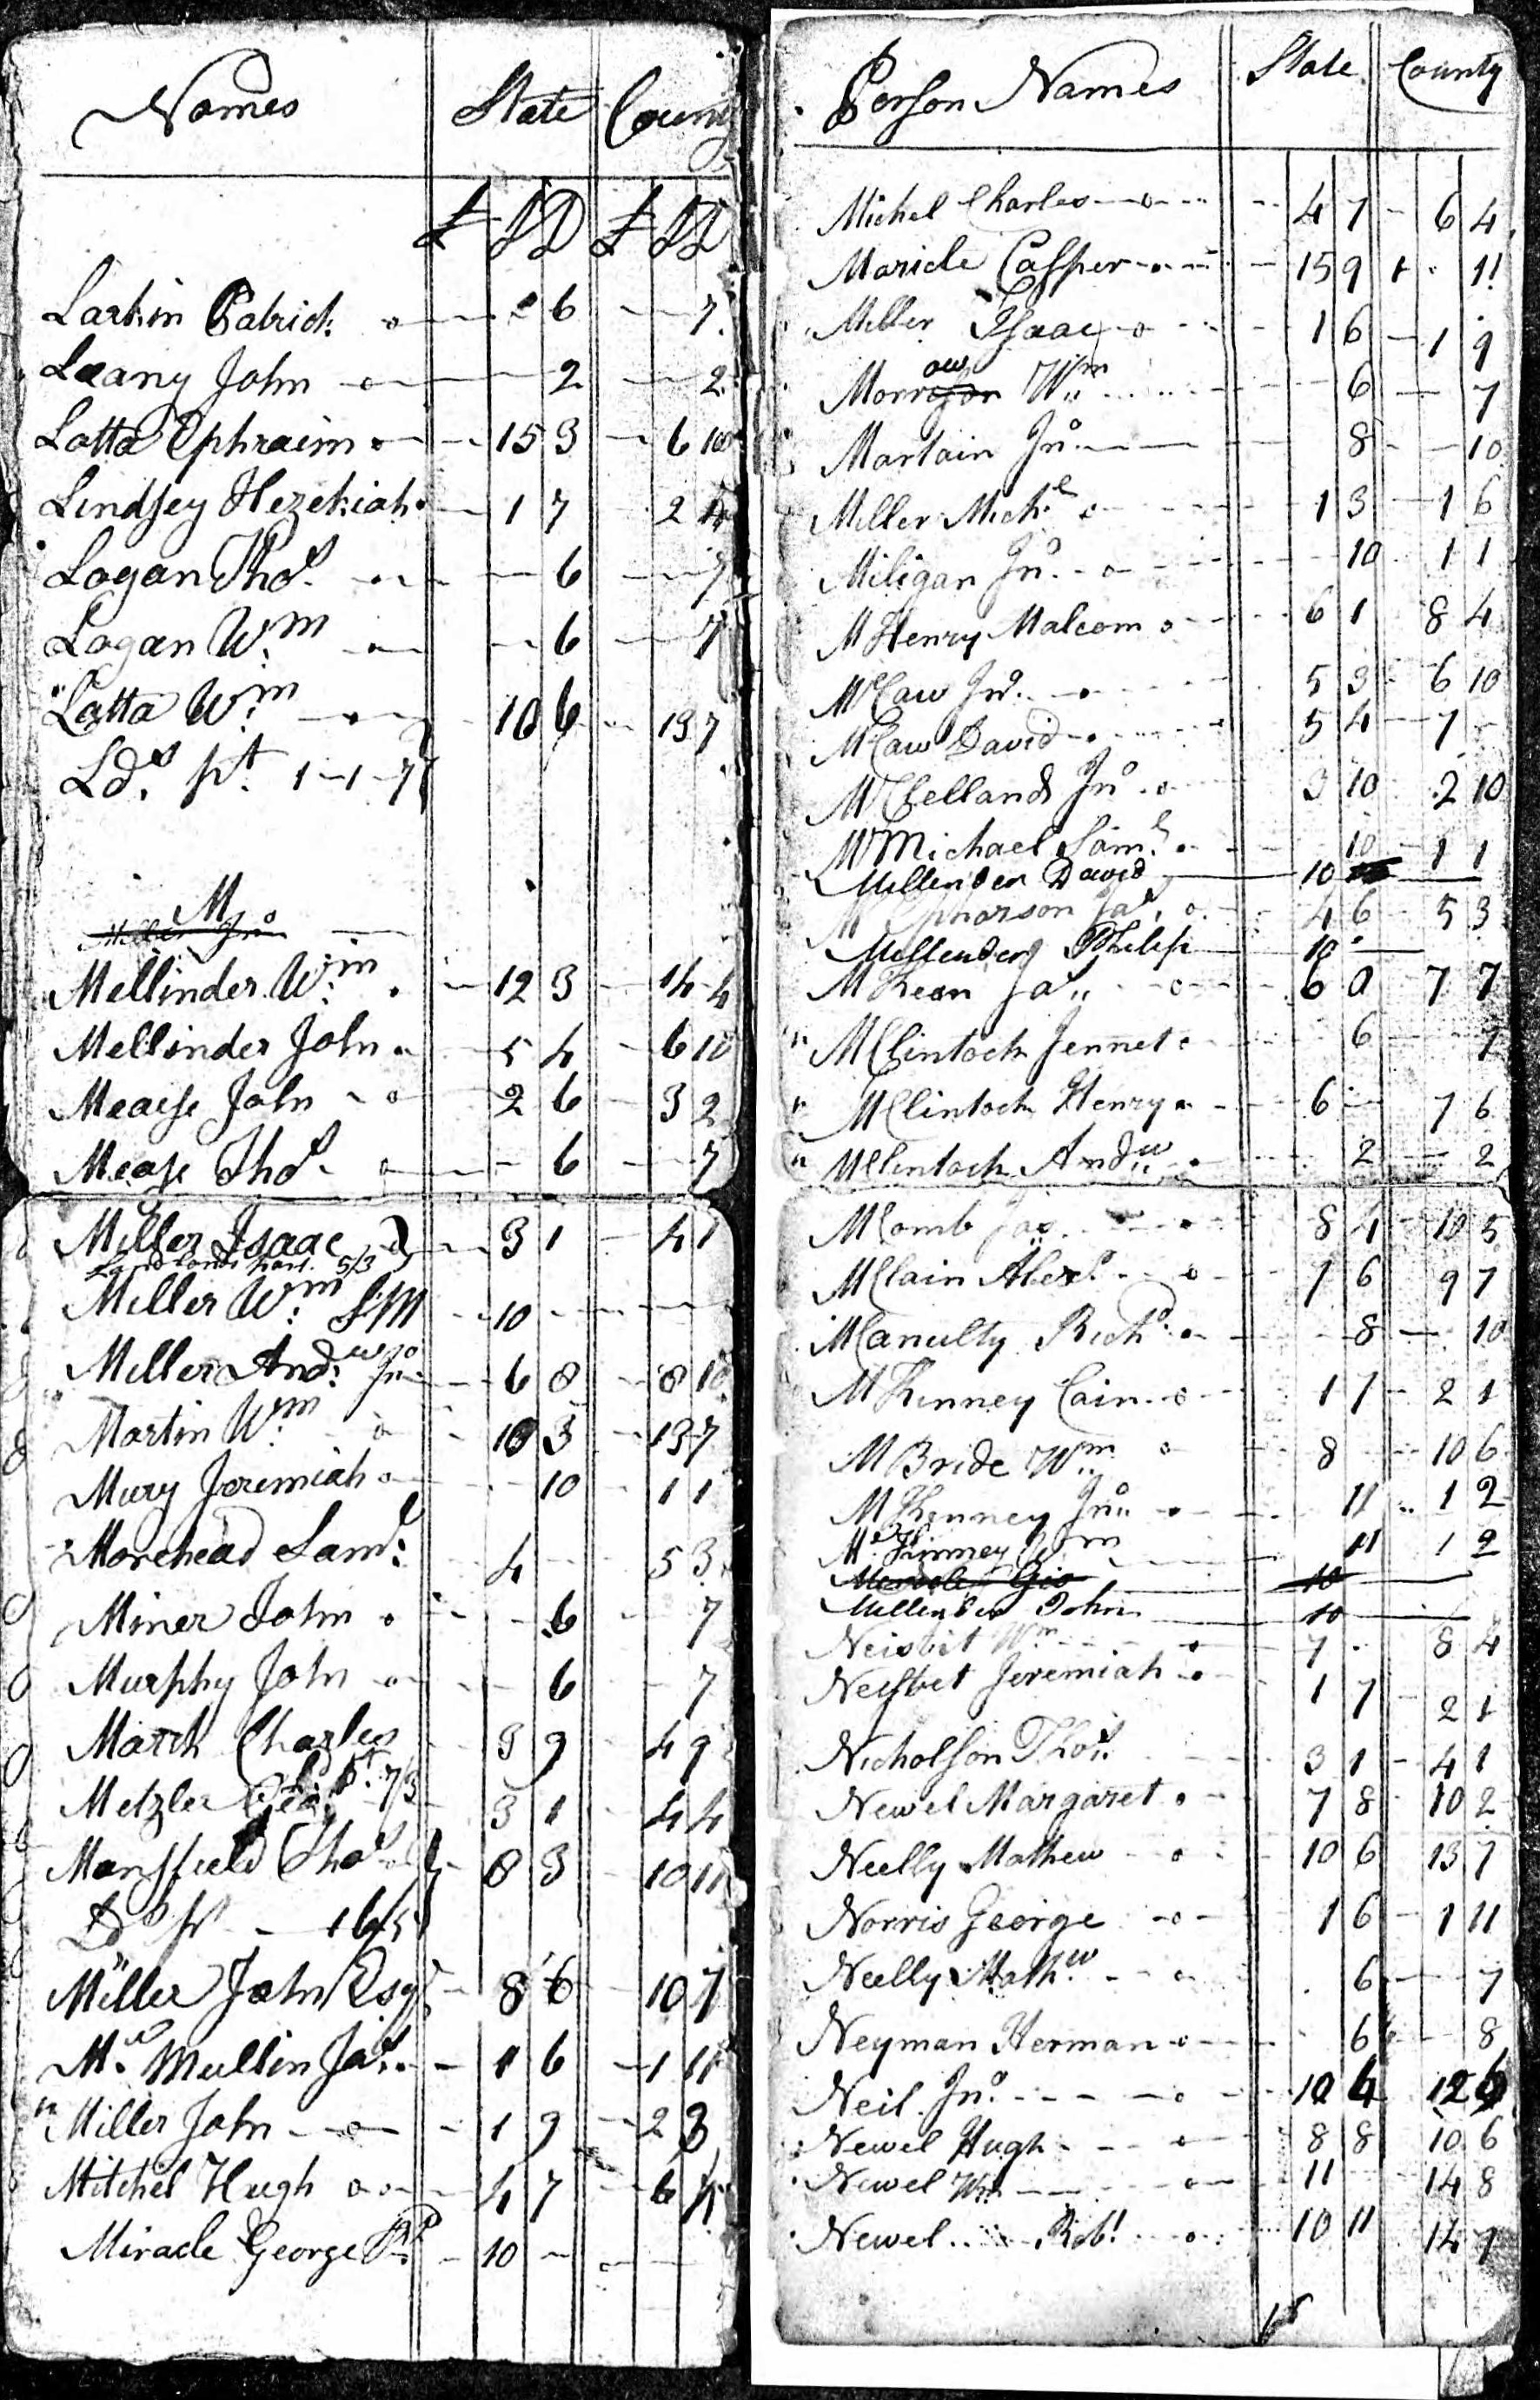 Names State County
£ S D £ S D
Larkin Patrick o 6 7
Leany John o 2 2
Latta Ephraim 15 3 6 10
Lindsey Hezekiah 1 7 2
Logan Thos. 6 7
Logan Wm 6 7
Latta Wm 10 6 13 7
Lds. pt. 1-1-7
M
Miller Jno
Mellinder Wm 12 3 14 4
Mellinder John 5 4 6 10
Mease John o 2 6 3 2
Mease Thos. o 6 7
Miller Isaac 3 1 4 1
5/3
Miller Wm S:M 10
Miller Andw. Jno 6 8 8 10
Martin Wm o 10 3 13 7
Mury Jeremiah o 10 1 1
Morehead Saml: 4 5 3
Miner John o 6 7
Murphy John o 6 7
March Charles 3 9 4 9
Metzler Geo pt. 7/3 3 1 4 4
Mansfield Thos 8 3 10 11
Ld pt 16/5
Miller John Esqr 8 6 10 7
Mc. Mullin Jas. 1 6 1 11
" Miller John o 1 9 2 3
Mitchel Hugh o o 4 7 6 4
Miracle George 10
Person Names State County
Michel Charles o 4 7 6 4
Maricle Casper 15 9 1 11
Miller Isaac o 1 6 1 9
ow
Morrison Wm 6 7
Martain Jno. 8 10
Miller Michl o 1 3 1 6
Miligan Jno. o 10 1 1
M Henry Malcom o 6 1 8 4
McCaw Jno. 5 3 6 10
McCaw David 5 4 7
McClelland Jno o 3 10 2 10
McMichael Saml. 10 1 1
Mellender David 10
Mcpharson Jas. o 4 6 5 3
Mellender Philip 10
McKean Jas o 6 0 7 7
" McClintock Jennet 6 7
" McClintock Henry 6 7 6
" McClintock Andw 2 2
McComb Jas 8 4 10 5
McClain Alexr. o 7 6 9 7
McCanulty Richd. 8 10
McKinney Cain o 1 7 2 1
McBride Wm o 8 10 6
McKinney Jno 11 1 2
Mc. Kinney Wm 11 1 2
Geo 10
Mellender John 10
Neisbit Wm 7 8 4
Neisbet Jeremiah o 1 7 2 1
Nicholson Thos. 3 1 4 1
Newel Margaret 7 8 10 2
Neelly Mathew o 10 6 13 7
Norris George o 1 6 1 11
Neelly Mathw o 6 7
Neyman Herman o 6 8
Neil Jno. o 10 4 12 6
Newel Hugh 8 8 10 6
Newel Wm o 11 14 8
Newel Robt. o 10 11 14 7